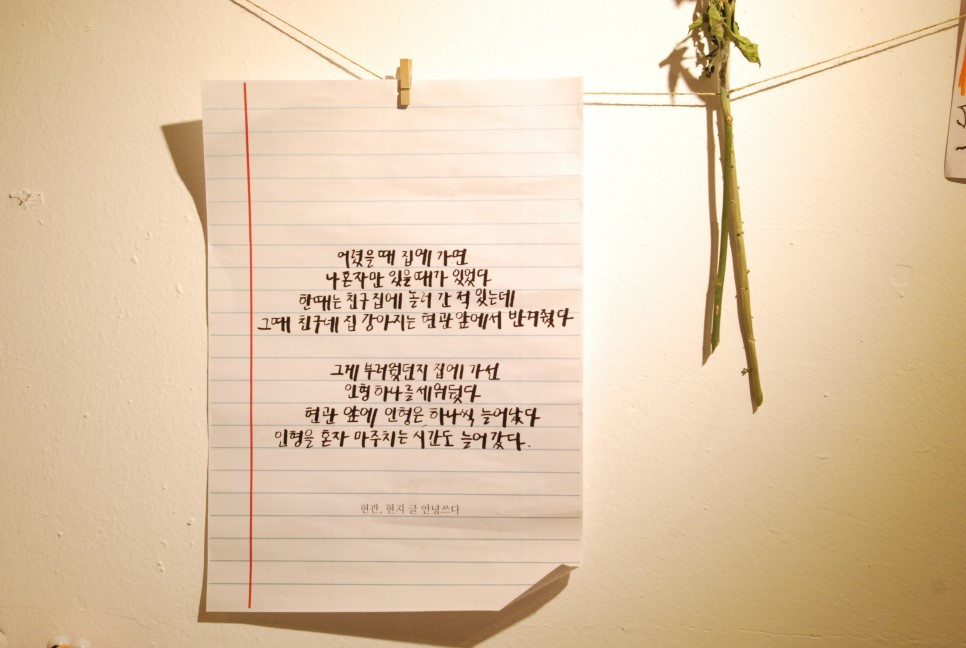 어렸을 때 집에 가면
나 혼자만 있을 때가 있었다
한때는 친구 집에 놀러 간 적 있는데
그때 친구네 집 강아지는 현관 앞에서 반겨줬다
그게 부러웠던지 집에 가선
인형 하나를 세워뒀다
현관 앞에 인형은 하나씩 늘어났다
인형을 혼자 마주치는 시간도 늘어갔다.
현관, 현지 글 안녕쓰다